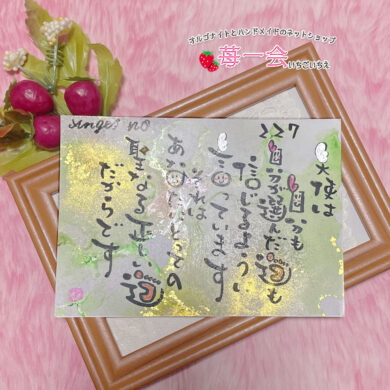 オルゴナイトとハンドメイドのネットショップ
苺一会
いちごいちえ
angel no
227
天使は
自分も
自分が選んだ道も
信じるように
言っています
それは
あなたにとっての
正しい道
だからです